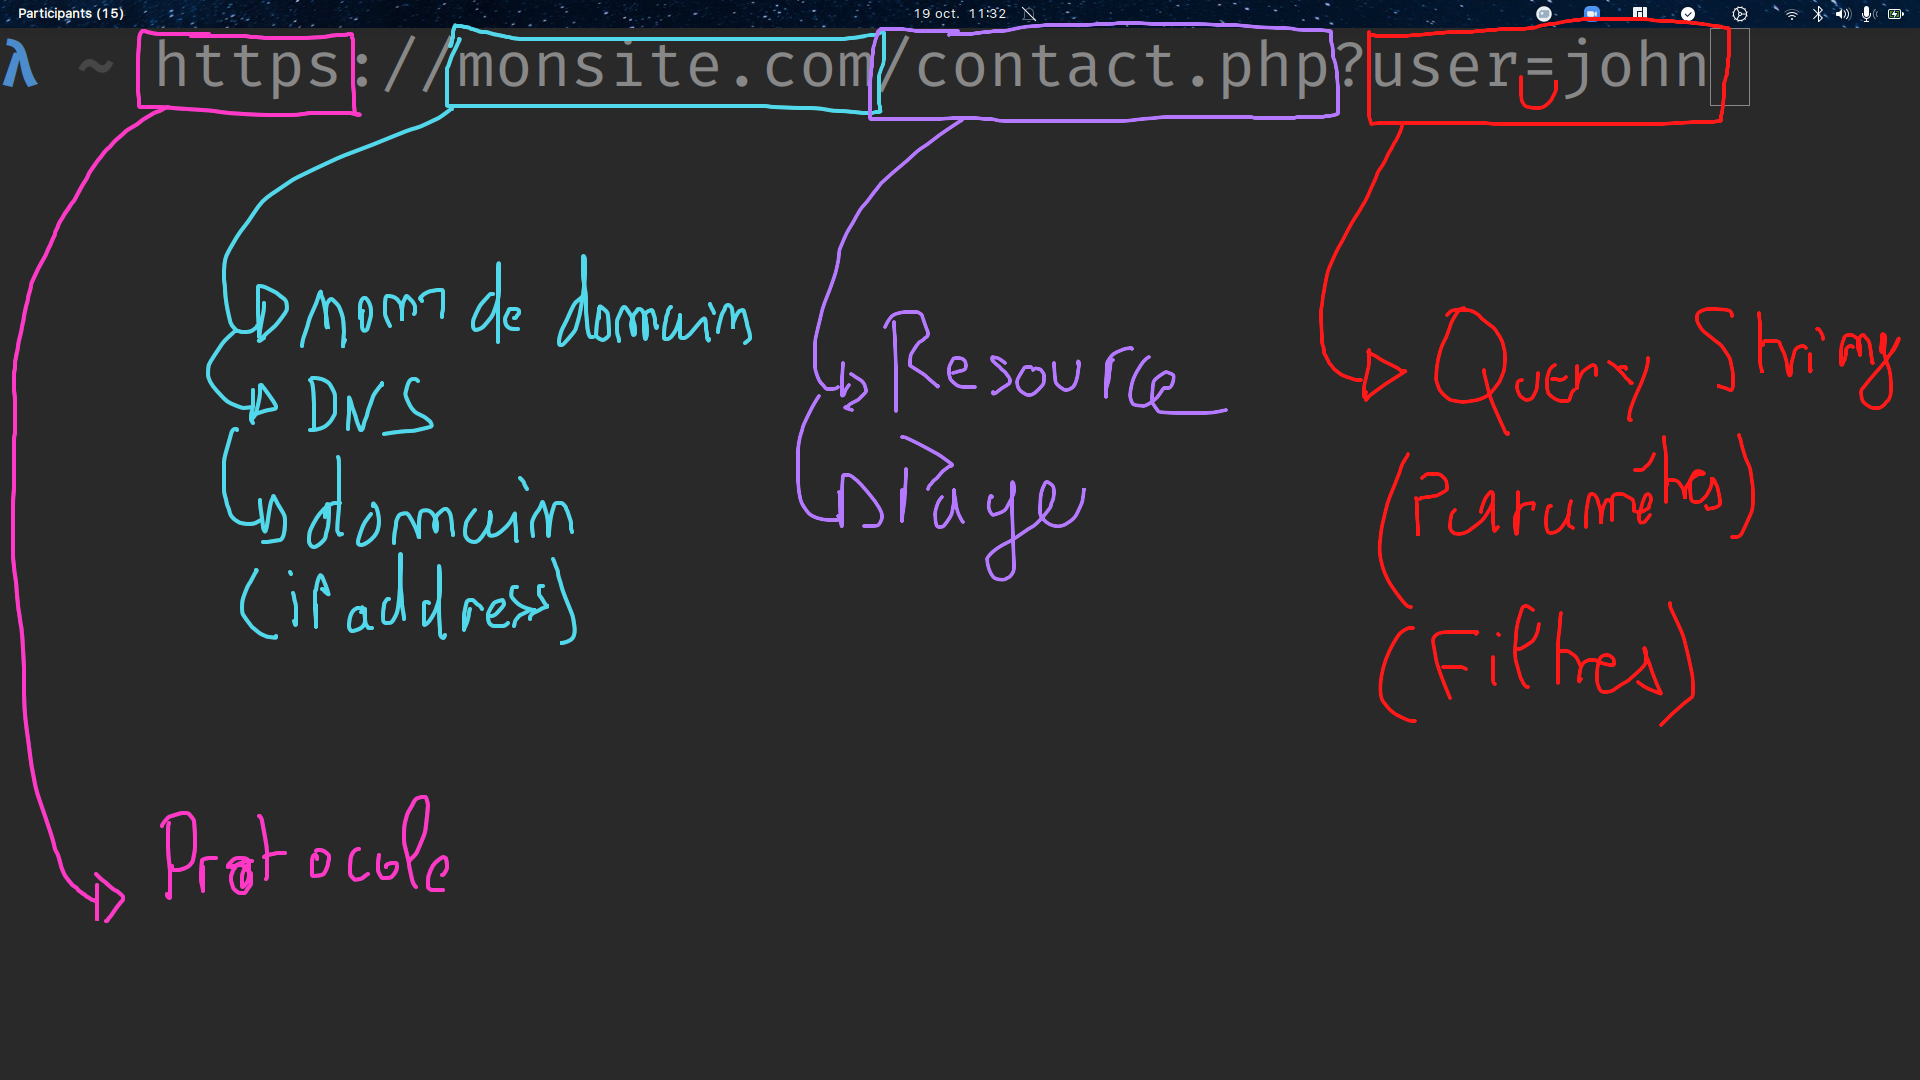 Participants (15)
19 oct. 11:32
λ ~ https://monsite.com/contact.php?user=john
nom de domain
DNS
domain
(ip address)
Resource
Page
Query String
(Paramètres)
(Filtres)
Protocole